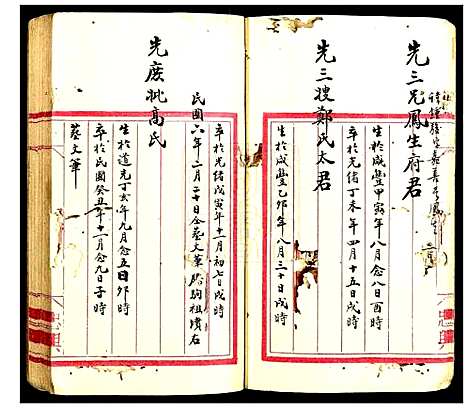 先三兄鳳生府君
生於咸豐甲寅年八月念八日酉時
卒於光緒丁未年四月十五日戌時
先三嫂鄭氏太君
生於咸豐乙卯年八月三十日戌時
卒於光緒戊寅年十一月初七日戌時
民國六年二月二十日仝葬文筆 駒祖墳右
先庶妣高氏
生於道光丁亥年九月念五日卯時
卒於民國癸丑年十一月念九日子時
葬文筆
忠興
忠興